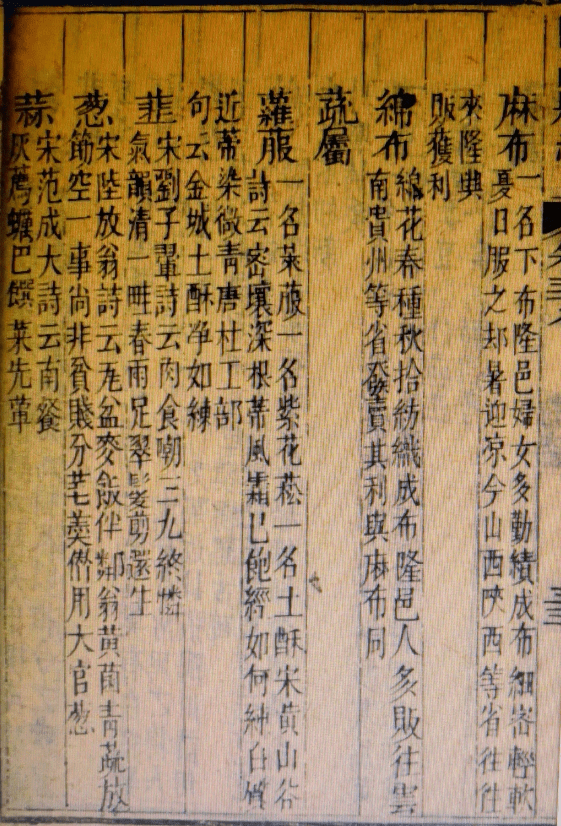 麻布一名下布隆邑婦女多勤績成布細密輕軟
夏日服之却暑迎凉今山西陝西等省往往
來隆興
販獲利
綿布綿花春種秋拾紡織成布隆邑人多販往雲
南貴州等省發賣其利與麻布同
蔬屬
蘿菔一名萊菔一名紫花菘一名土酥宋黃山谷
詩云密壤深根蒂風霜已飽經如何純白質
近蒂染微青唐杜工部
句云金城土酥净如練
韭宋劉子翬詩云肉食嘲三九終憐
氣韻清一畦春雨足翠髮剪還生
葱宋陸放翁詩云瓦盆麥飯伴鄰翁黃菌青蔬放
筯空一事尚非貧賤分芼羹僭用大官葱
蒜宋范成大詩云南餐
灰薦蠣巴饌菜先葷